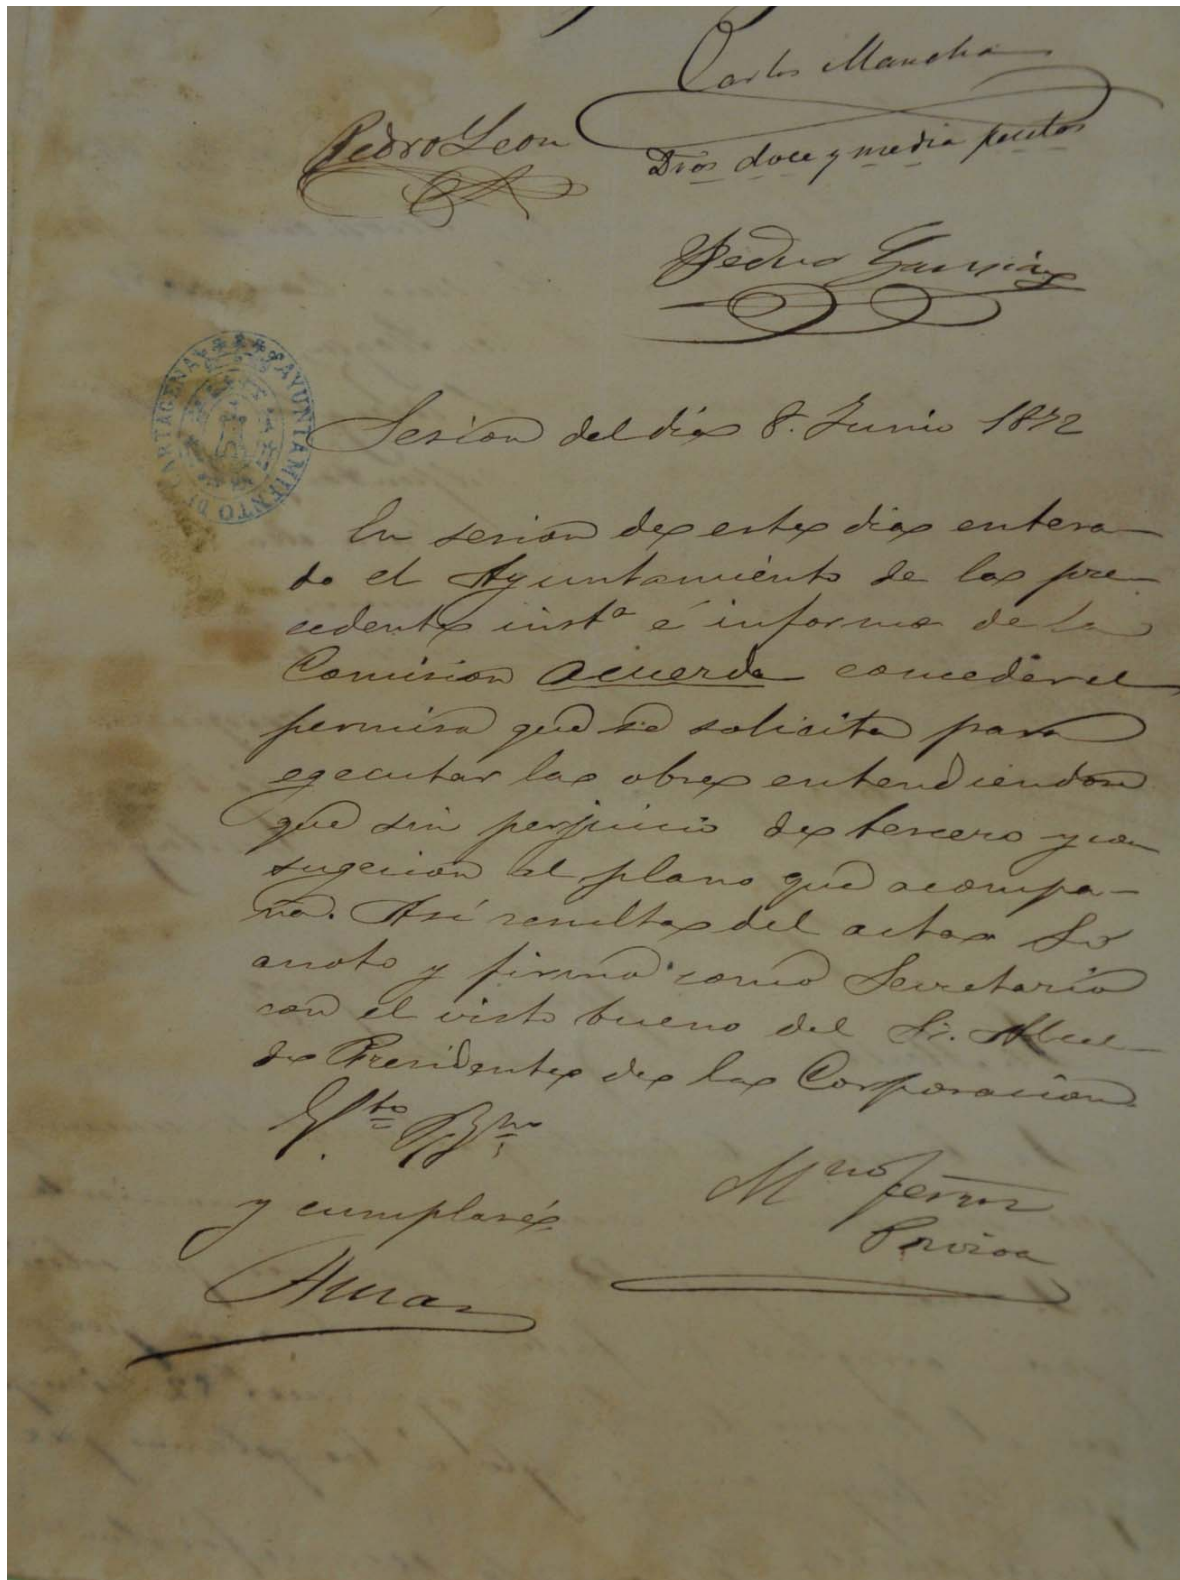 Carlos Mancha
Pedro Leon
Dros doce y media pesetas
Pedro Garcia
AYUNTAMIENTO DE CARTAGENA
Sesion del dia 8. Junio 1872
En sesion de este dia entera-
do el Ayuntamiento de la pre-
cedente inst.ª é informe de la
Comision acuerda conceder el
permiso que se solicita para
egecutar las obras entendiendose
que sin perjuicio de tercero y con
sugecion al plano que acompa-
ña. Así resulta del acta
anoto y firmo como Secretario
con el visto bueno del Sr. Alcal-
de Presidente de la Corporacion.
V.to B.no
y cumplase
M.no Ferrer